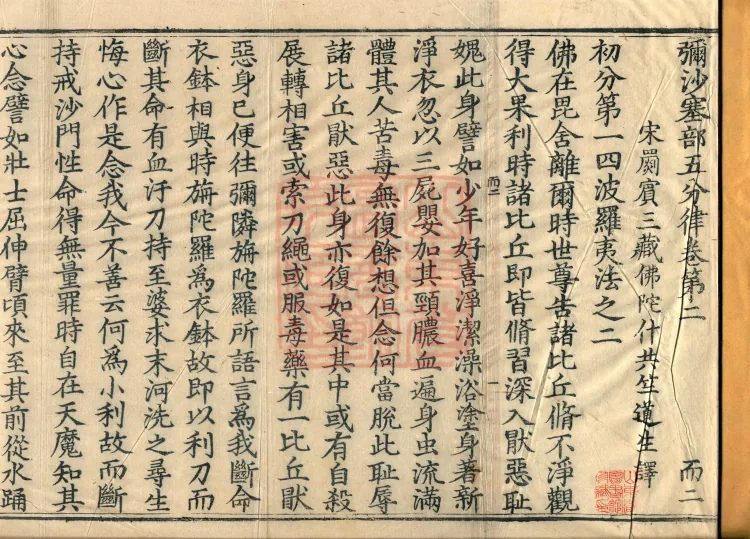 彌沙塞部五分律卷第二 而二
宋罽賓三藏佛陀什共竺道生譯
初分第一四波羅夷法之二
佛在毘舍離爾時世尊告諸比丘脩不淨觀
得大果利時諸比丘即皆脩習深入猒惡恥
媿此身譬如少年好喜淨潔澡浴塗身著新
淨衣忽以三屍嬰加其頸膿血遍身虫流滿
體其人苦毒無復餘想但念何當脫此恥辱
諸比丘猒惡此身亦復如是其中或有自殺
展轉相害或索刀繩或服毒藥有一比丘猒
惡身已便往彌隣旃陀羅所語言爲我斷命
衣鉢相與時旃陀羅爲衣鉢故即以利刀而
斷其命有血汙刀持至婆求末河洗之尋生
悔心作是念我今不善云何爲小利故而斷
持戒沙門性命得無量罪時自在天魔知其
心念譬如壯士屈伸臂頃來至其前從水踊
而二
一